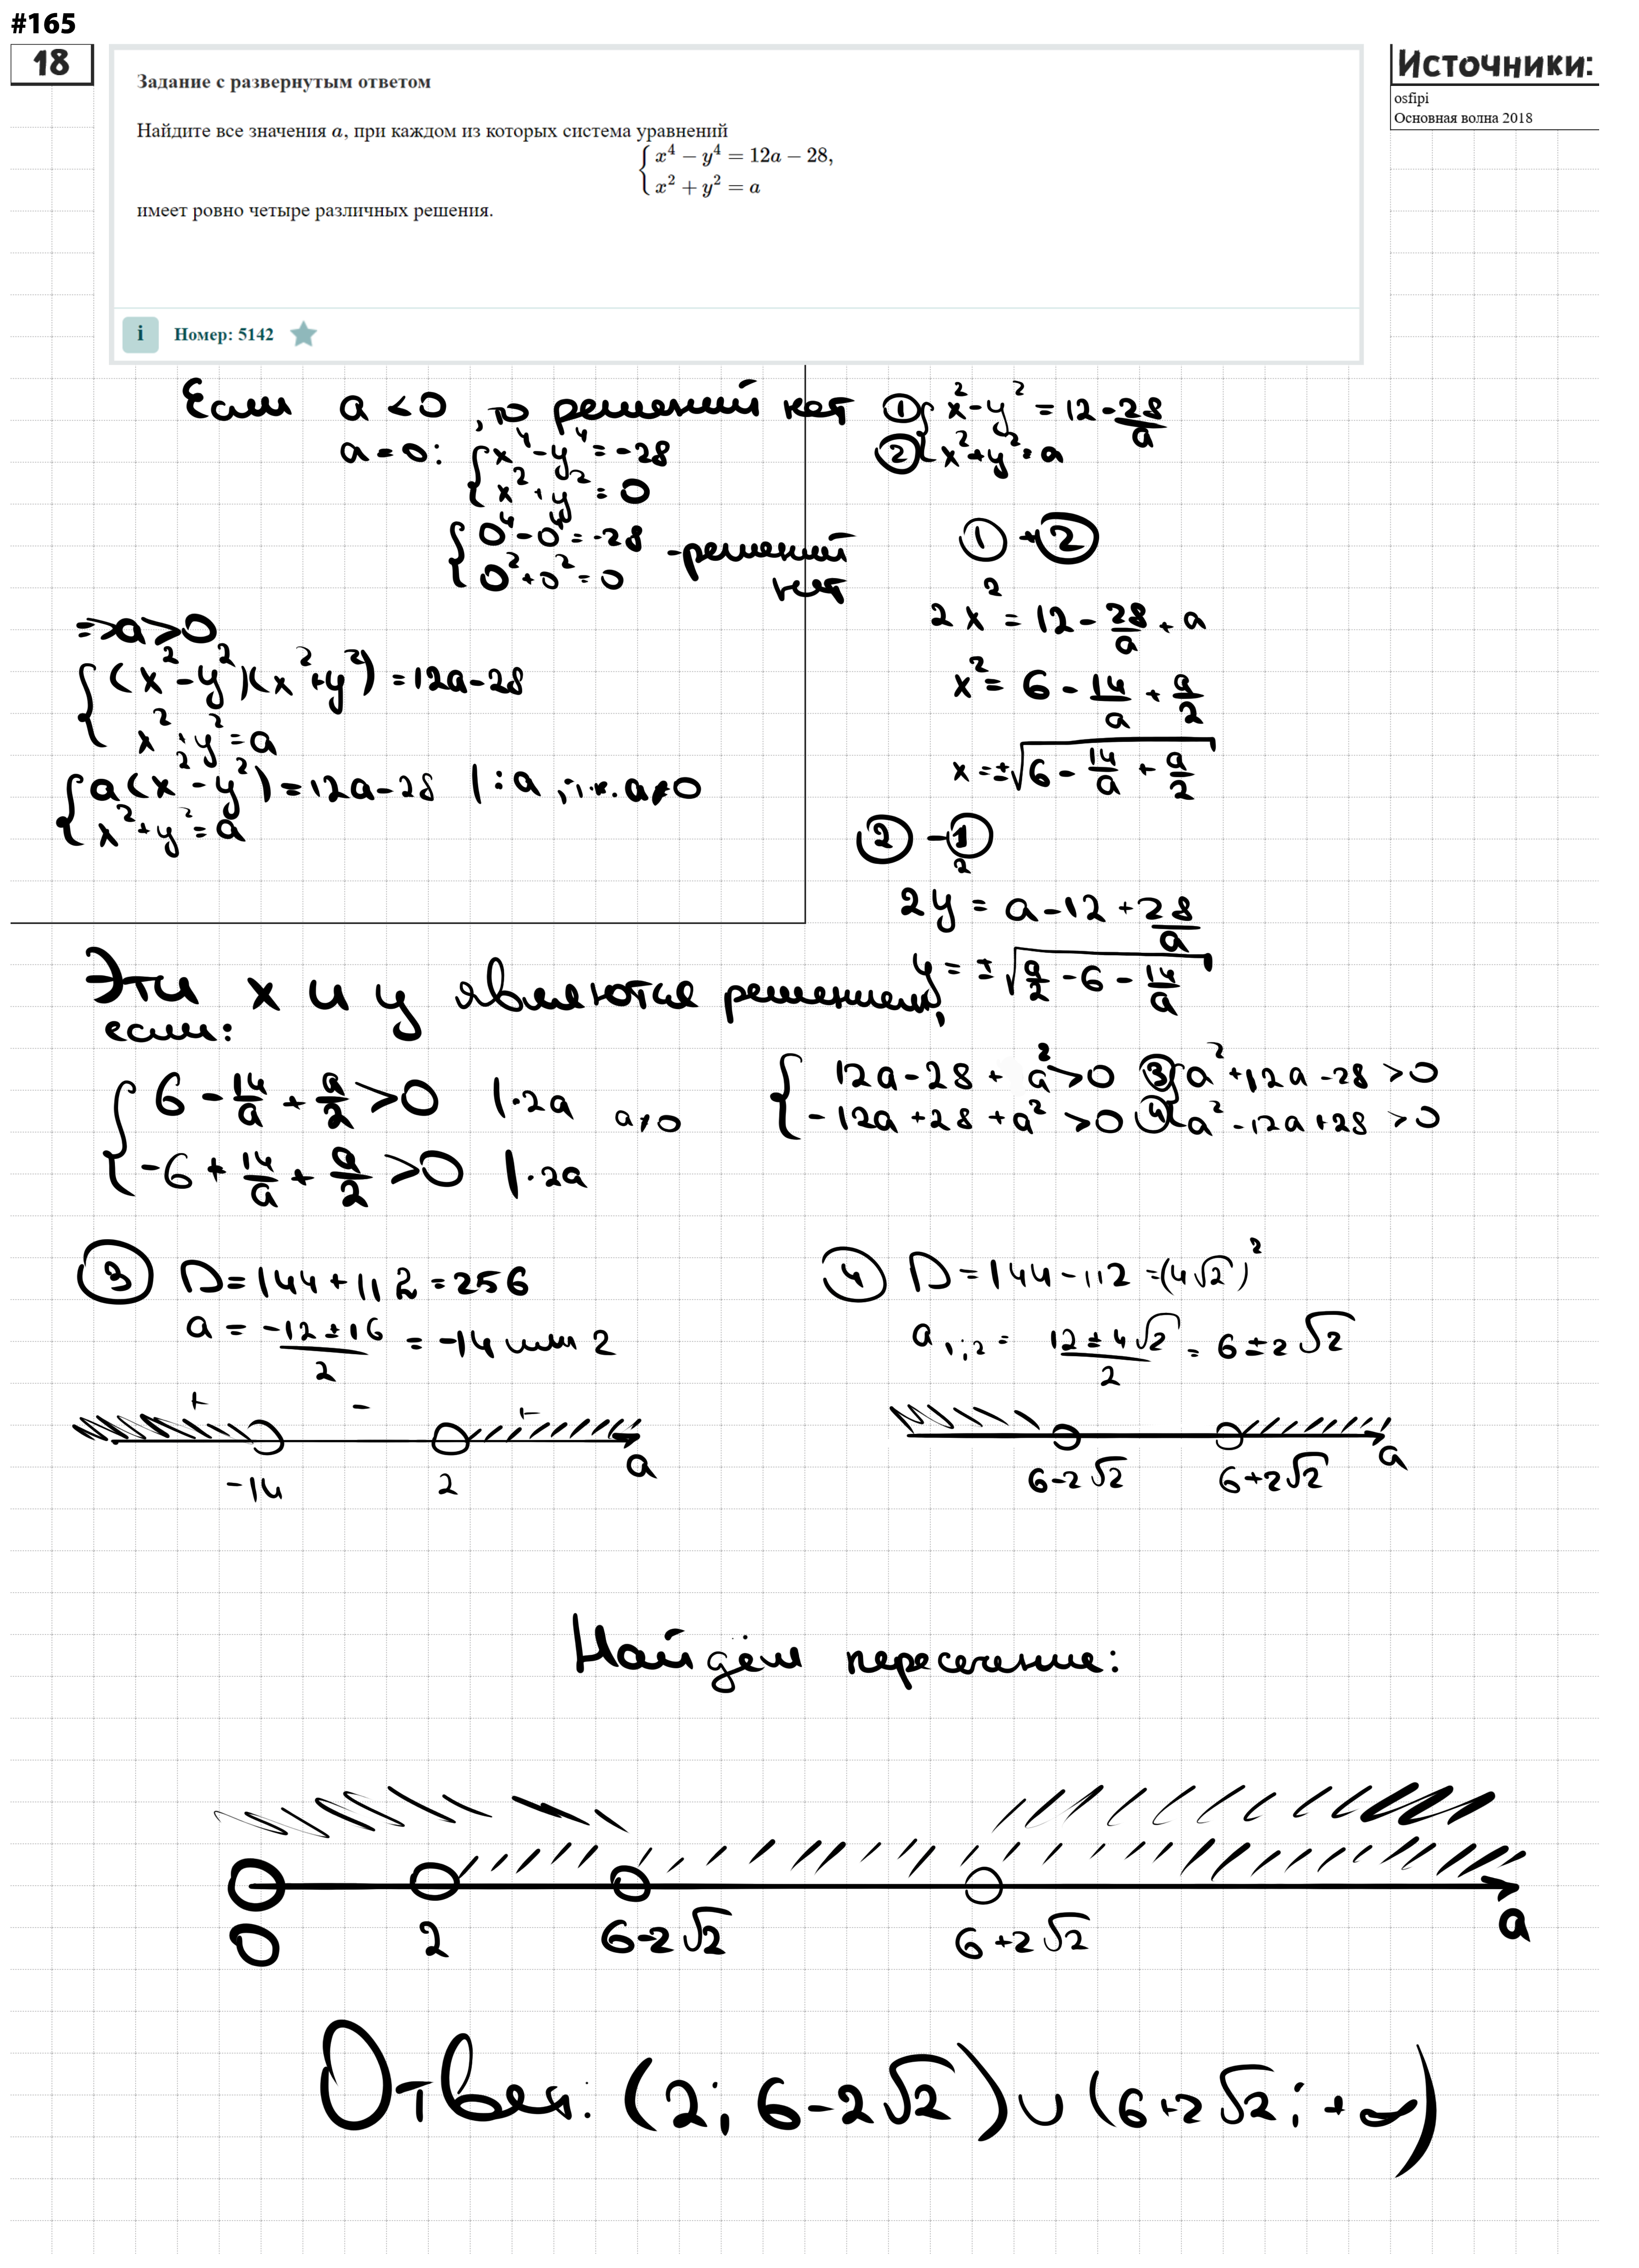 #165
18
Источники:
osfipi
Основная волна 2018
Задание с развернутым ответом
Найдите все значения a, при каждом из которых система уравнений
{ x⁴ − y⁴ = 12a − 28,
x² + y² = a
имеет ровно четыре различных решения.
i Номер: 5142
Если a < 0, то решений нет
a = 0: { x⁴ - y⁴ = -28
x² + y² = 0
{ 0⁴ - 0⁴ = -28
0² + 0² = 0 - решений нет
=> a > 0
{ (x² - y²)(x² + y²) = 12a - 28
x² + y² = a
{ a(x² - y²) = 12a - 28 |: a, т.к. a≠0
x² + y² = a
① { x² - y² = 12 - 28/a
② x² + y² = a
① + ②
2x² = 12 - 28/a + a
x² = 6 - 14/a + a/2
x = ±√(6 - 14/a + a/2)
② - ①
2y² = a - 12 + 28/a
y = ±√(a/2 - 6 - 14/a)
Эти x и y являются решением,
если:
{ 6 - 14/a + a/2 > 0 |·2a a≠0
-6 + 14/a + a/2 > 0 |·2a
{ 12a - 28 + a² > 0 ③ { a² + 12a - 28 > 0
-12a + 28 + a² > 0 ④ a² - 12a + 28 > 0
③ D = 144 + 112 = 256
a = (-12 ± 16)/2 = -14 или 2
+ - +
-14 2 a
④ D = 144 - 112 = (4√2)²
a₁;₂ = (12 ± 4√2)/2 = 6 ± 2√2
6-2√2 6+2√2 a
Найдём пересечение:
0 2 6-2√2 6+2√2 a
Ответ: (2; 6-2√2) ∪ (6+2√2; +∞)